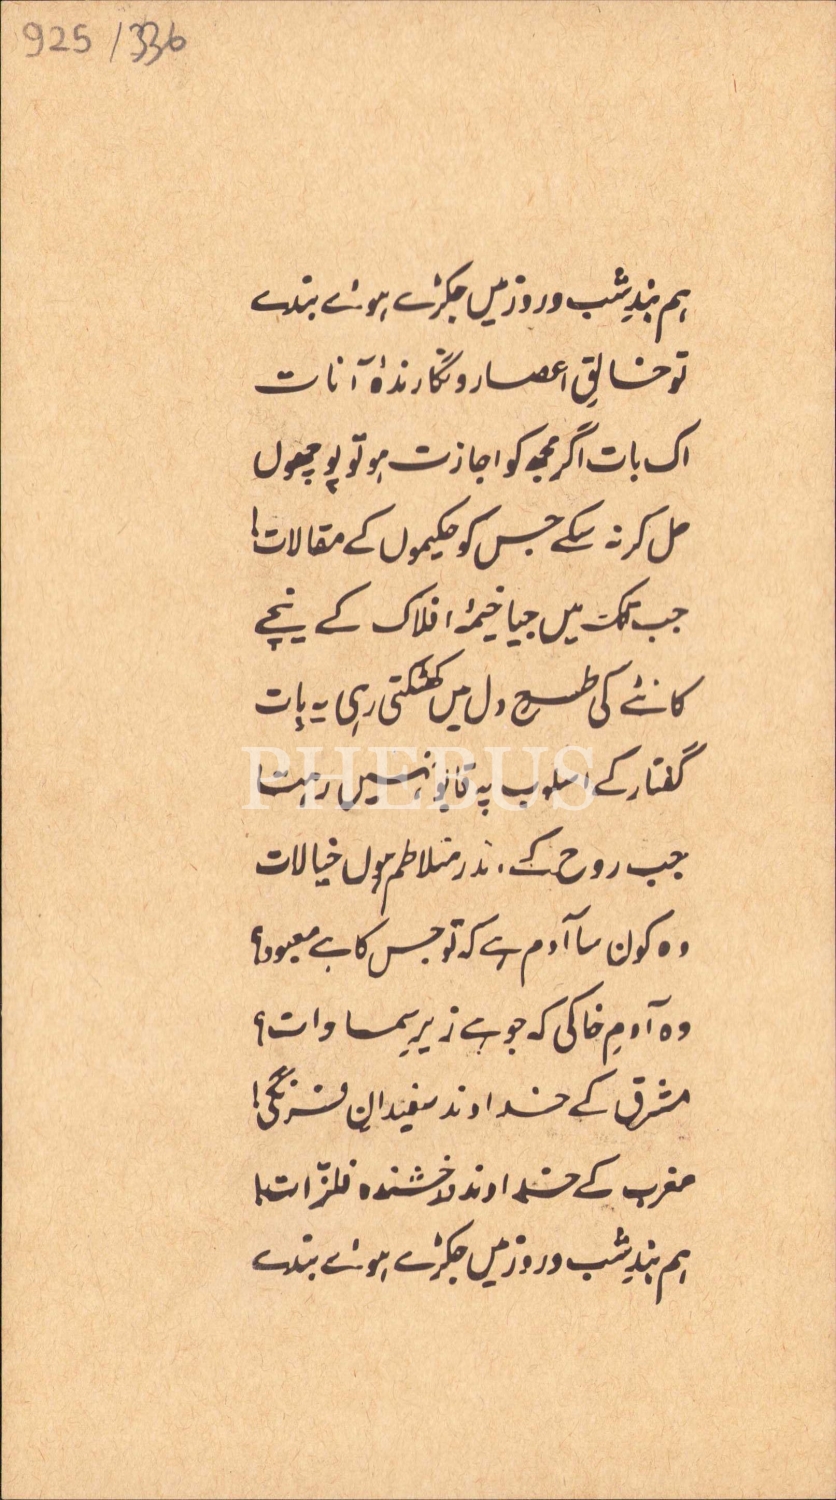 925 / 336
ہم بندِ شب و روز میں جکڑے ہوئے بندے
تو خالقِ اعصار و نگارندۂ آنات
اک بات اگر مجھ کو اجازت ہو تو پوچھوں
حل کر نہ سکے جس کو حکیموں کے مقالات!
جب تک میں جیا خیمۂ افلاک کے نیچے
کانٹے کی طرح دل میں کھٹکتی رہی یہ بات
گفتار کے اسلوب پہ قابو نہیں رہتا
PHEBUS
جب روح کے اندر متلاطم ہوں خیالات
وہ کون سا آدم ہے کہ تو جس کا ہے معبود؟
وہ آدمِ خاکی کہ جو ہے زیرِ سماوات؟
مشرق کے خداوند سفیدانِ فرنگی!
مغرب کے خداوند درخشندہ فلزّات!
ہم بندِ شب و روز میں جکڑے ہوئے بندے